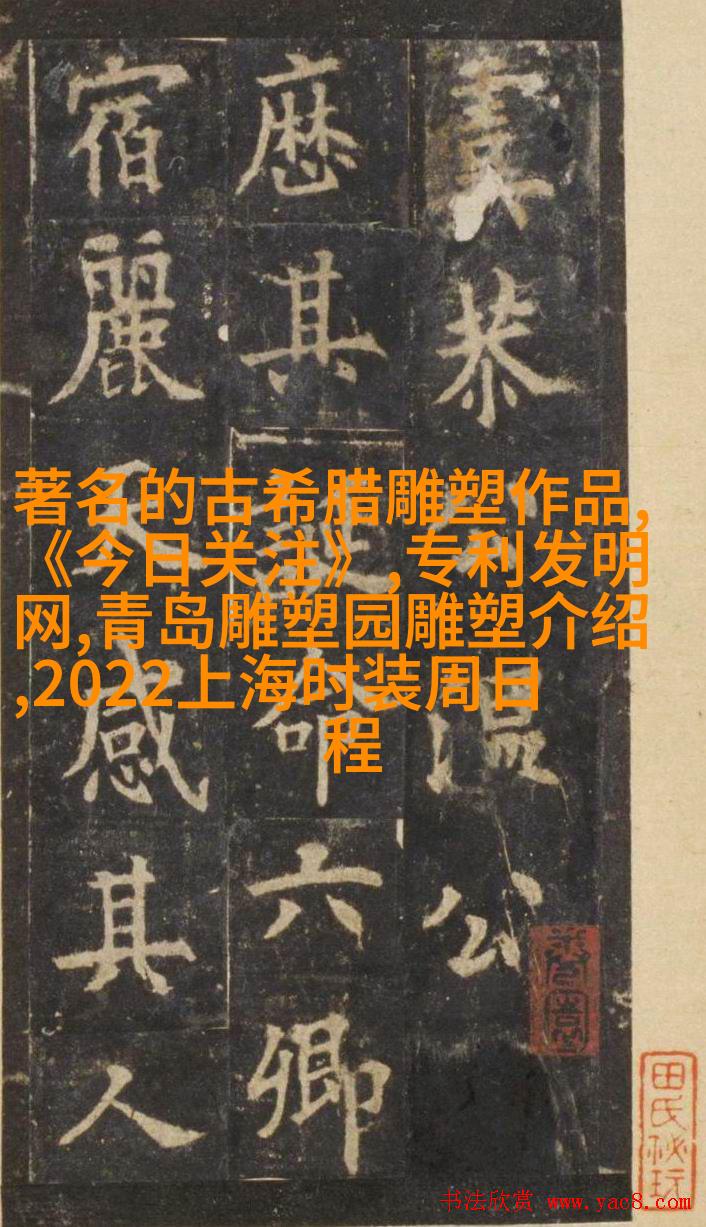 著名的古希腊雕塑作品,
《今日关注》,专利发明
网,青岛雕塑园雕塑介绍
,2022上海时装周日
程
恭温公
厯其命六卿
宿麗感其人
田氏秘玩
书法欣赏 www.yac8.com